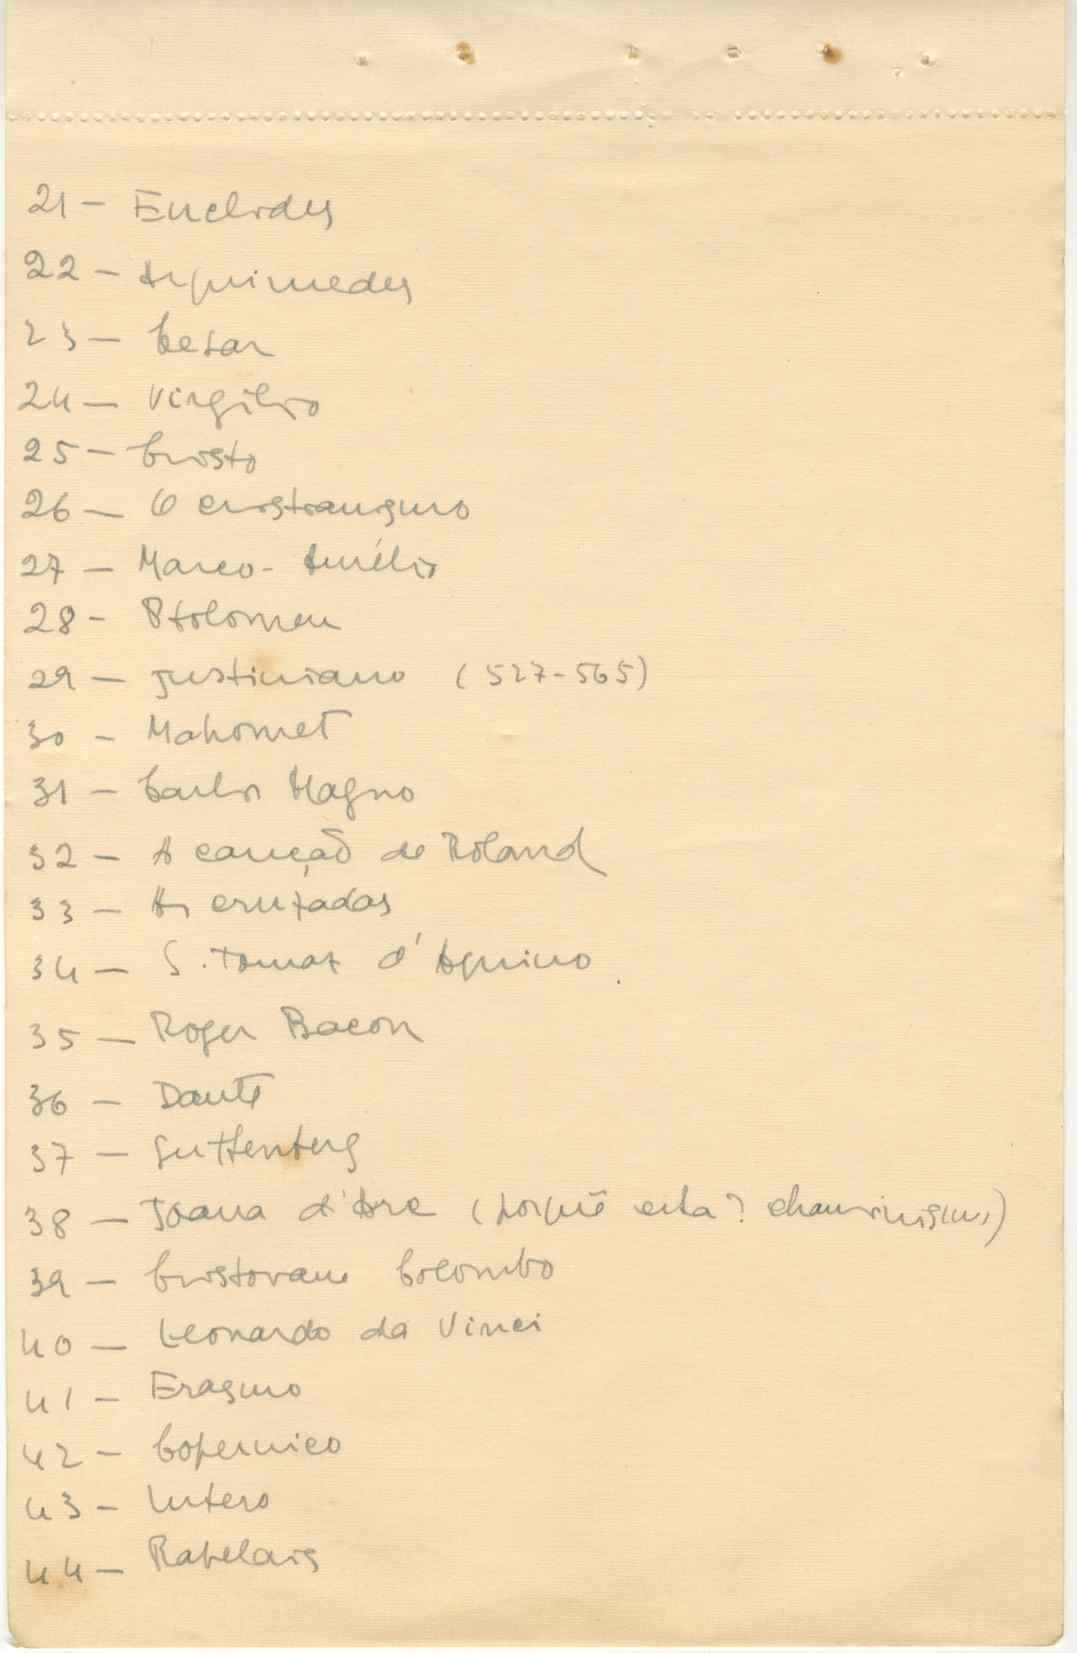 21 - Euclides
22 - Arquimedes
23 - Cesar
24 - Virgilio
25 - Cristo
26 - O cristianismo
27 - Marco-Aurélio
28 - Ptolomeu
29 - Justiniano (527-565)
30 - Mahomet
31 - Carlos Magno
32 - A canção de Roland
33 - As cruzadas
34 - S. Tomaz d'Aquino
35 - Roger Bacon
36 - Dante
37 - Guttenberg
38 - Joana d'Arc (porquê esta? chauvinismo)
39 - Cristovam Colombo
40 - Leonardo da Vinci
41 - Erasmo
42 - Copernico
43 - Lutero
44 - Rabelais